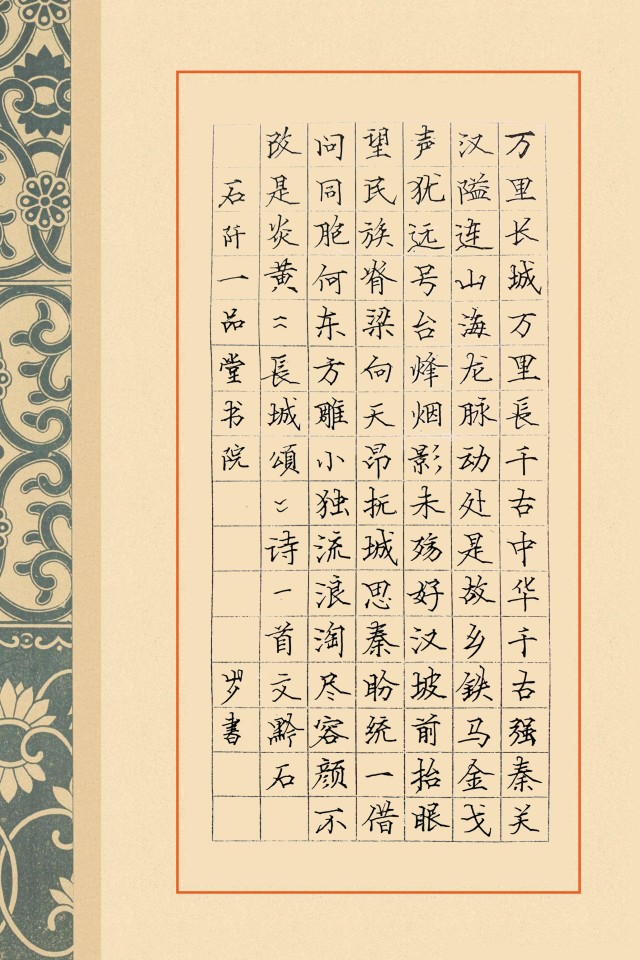 万里长城万里長千古中华千古强秦关
汉隘连山海龙脉动处是故乡鉄马金戈
声犹远号台烽烟影未殇好汉坡前抬眼
望民族脊梁向天昂抚城思秦盼统一借
问同胞何东方雕小独流浪淘尽容颜不
改是炎黄《長城頌》诗一首文黔石
石阡一品堂书院 岁書